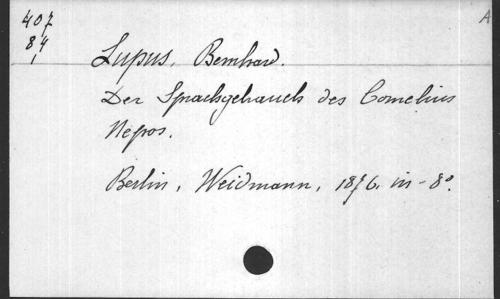 407 A
84
1
Lupus, Bernhard.
Der Sprachgebrauch des Cornelius
Nepos.
Berlin, Weidmann, 1876. in-8°.